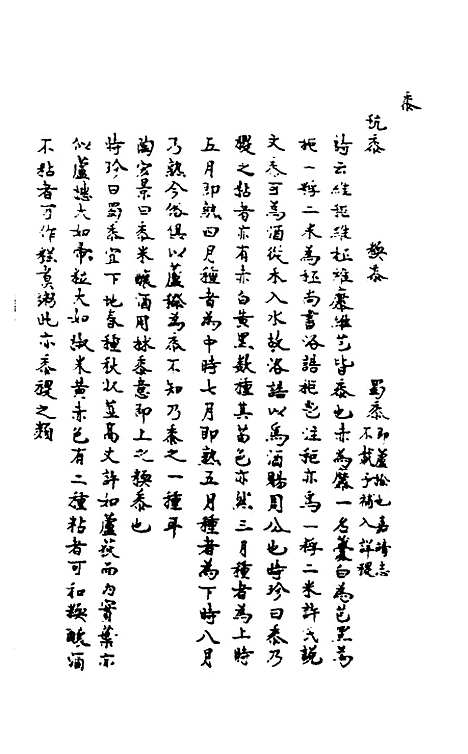 黍
秔黍 糯黍 蜀黍即蘆穄也嘉靖志
不載予補入詳稷
詩云維秬維秠維穈維芑皆黍也赤為穈一名虋白為芑黑為
秬一稃二米為秠尚書洛誥秬鬯注秬亦為一稃二米許氏說
文黍可為酒從禾入水故洛誥以為酒賜周公也時珍曰黍乃
稷之粘者亦有赤白黃黑數種其苗色亦然三月種者為上時
五月即熟四月種者為中時七月即熟五月種者為下時八月
乃熟今俗俱以蘆穄為黍不知乃黍之一種耳
陶宏景曰黍米釀酒用秫黍意即上之糯黍也
時珍曰蜀黍宜下地春種秋收莖高丈許如蘆荻而內實葉亦
似蘆穗大如帚粒大如椒米黃赤色有二種粘者可和糯釀酒
不粘者可作糕煮粥此亦黍稷之類